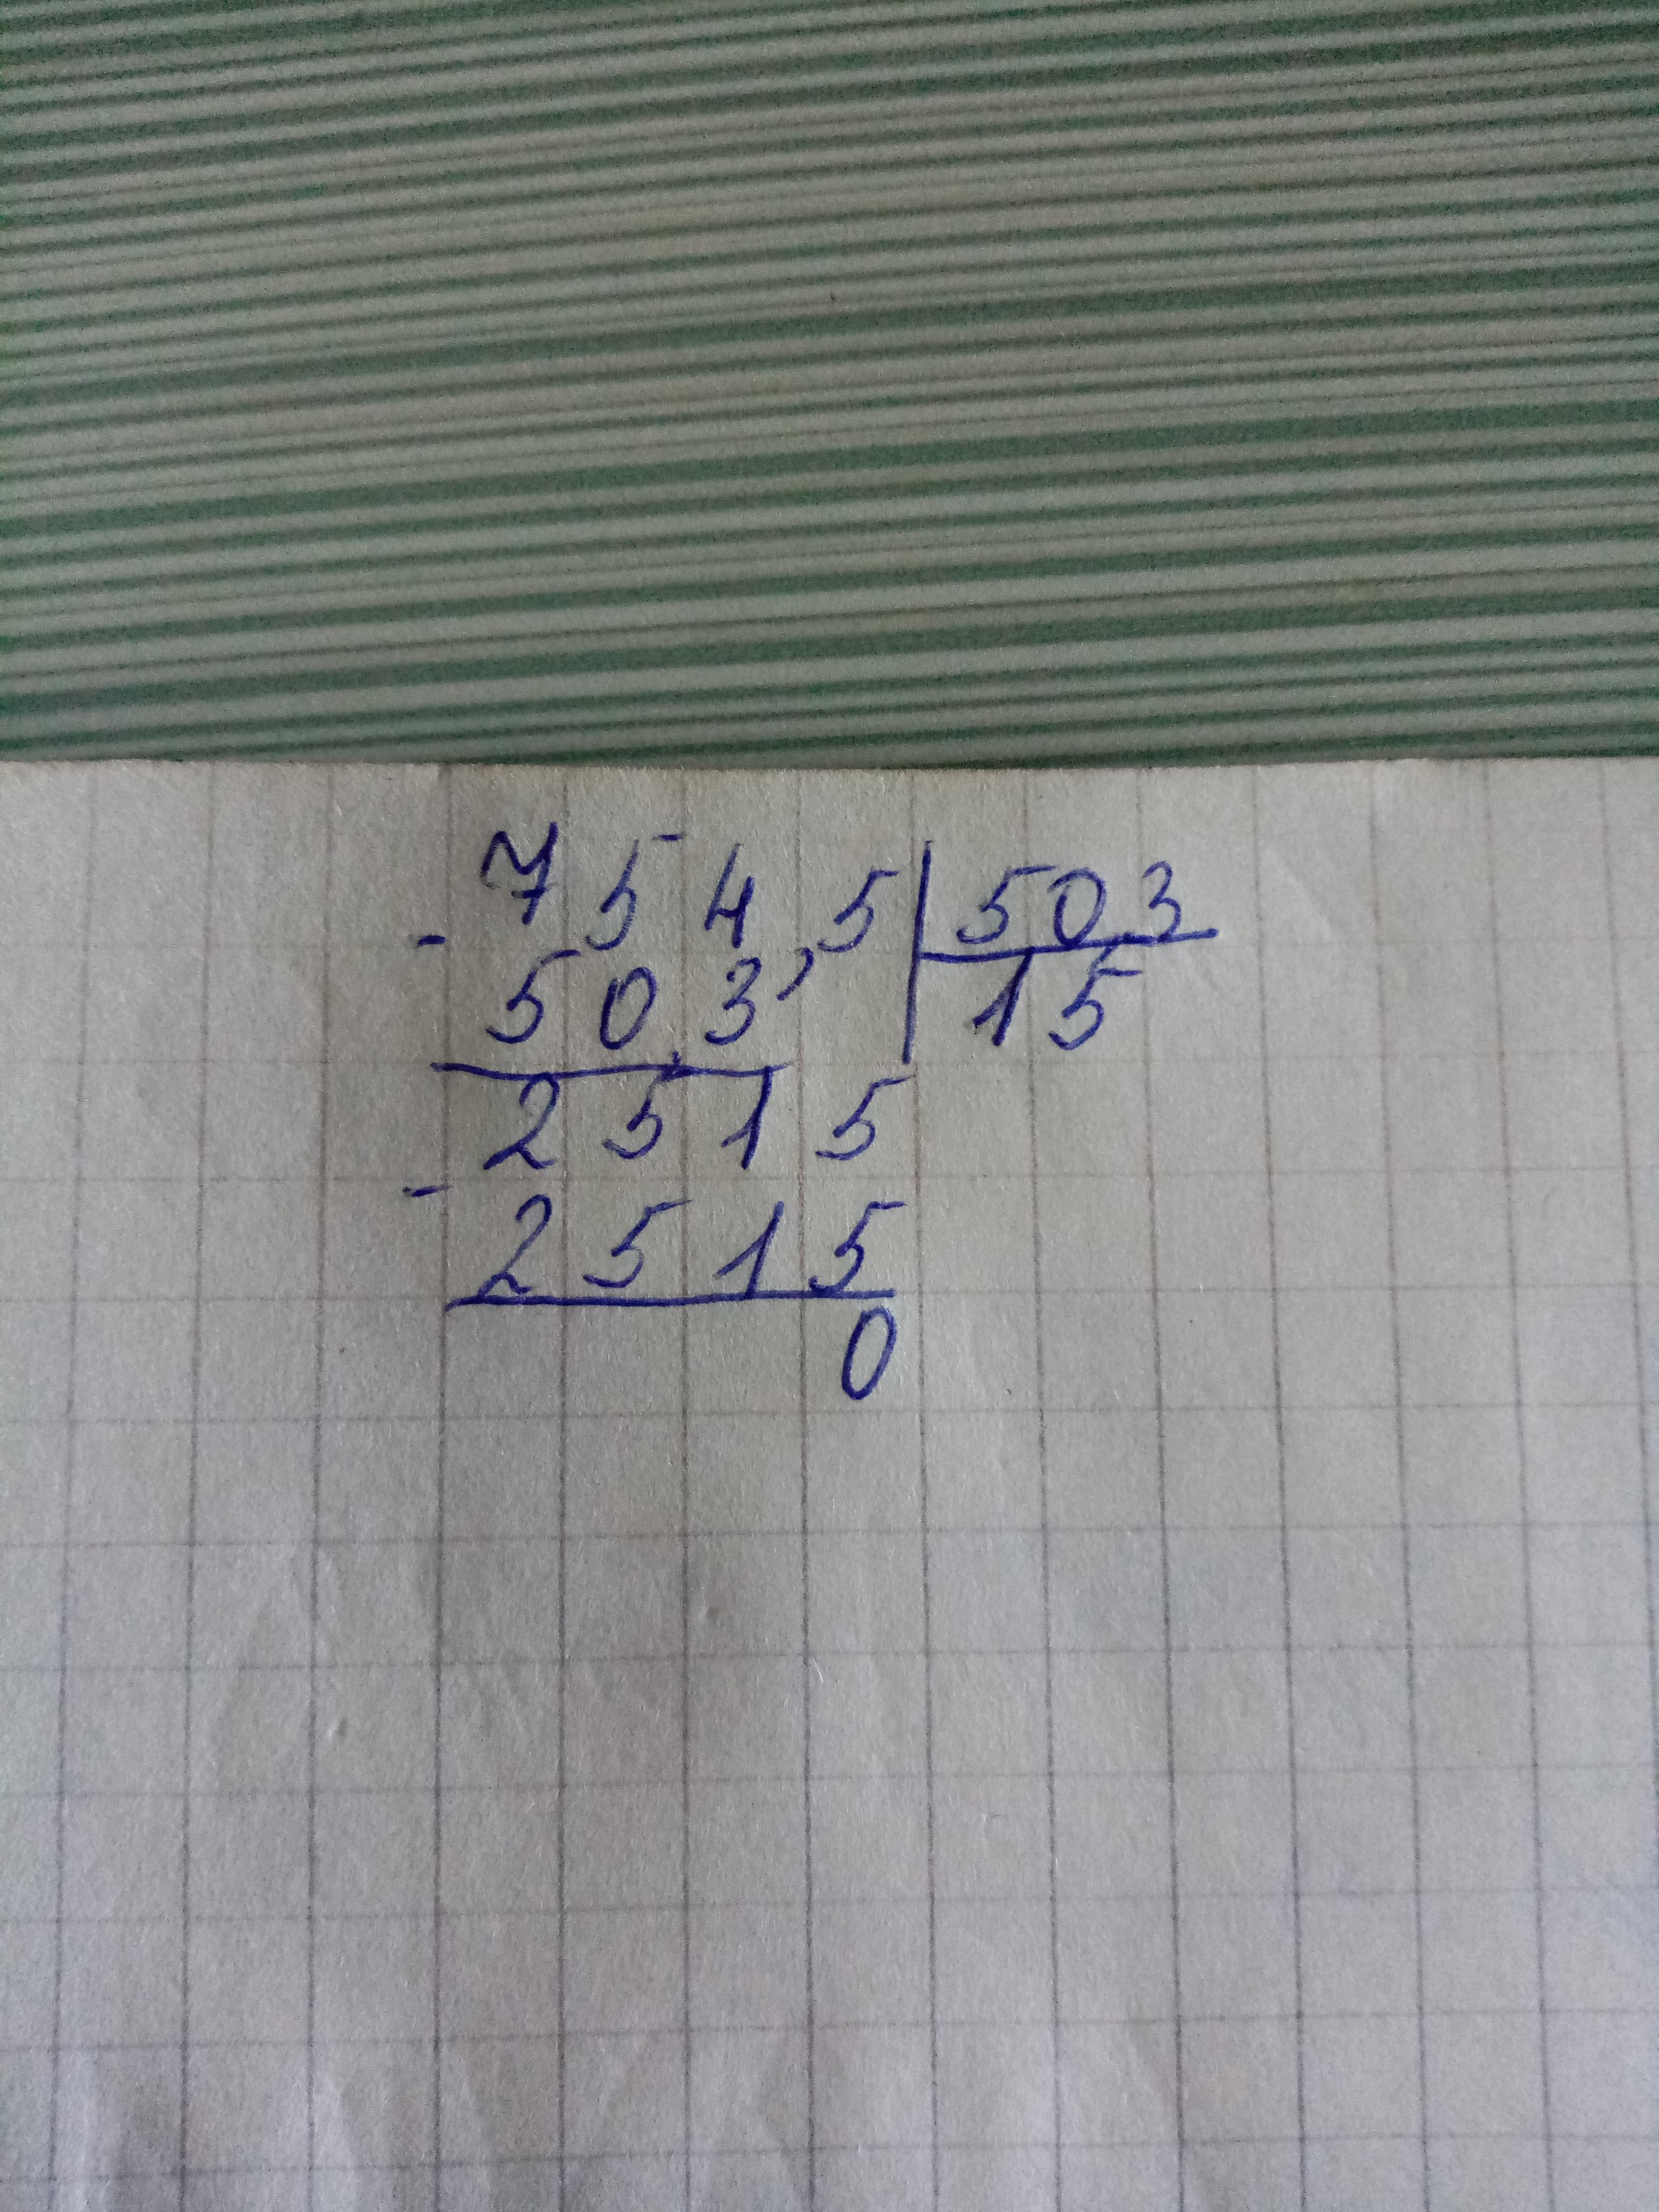 - 754,5 | 503
503 | 15
2515
- 2515
0